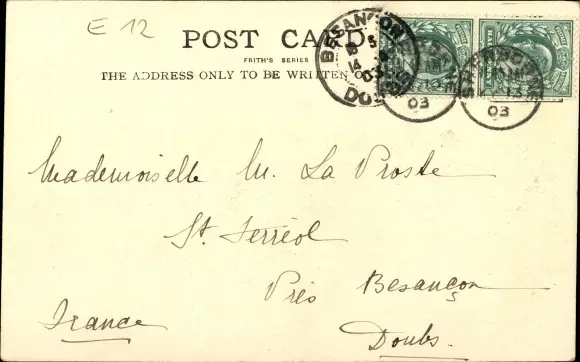 E 12
POST CARD
FRITH'S SERIES
THE ADDRESS ONLY TO BE WRITTEN
BESANÇON
14
03
DOUBS
03
03
Mademoiselle M. La Proste
St. Ferréol
Près Besançon
France
Doubs.